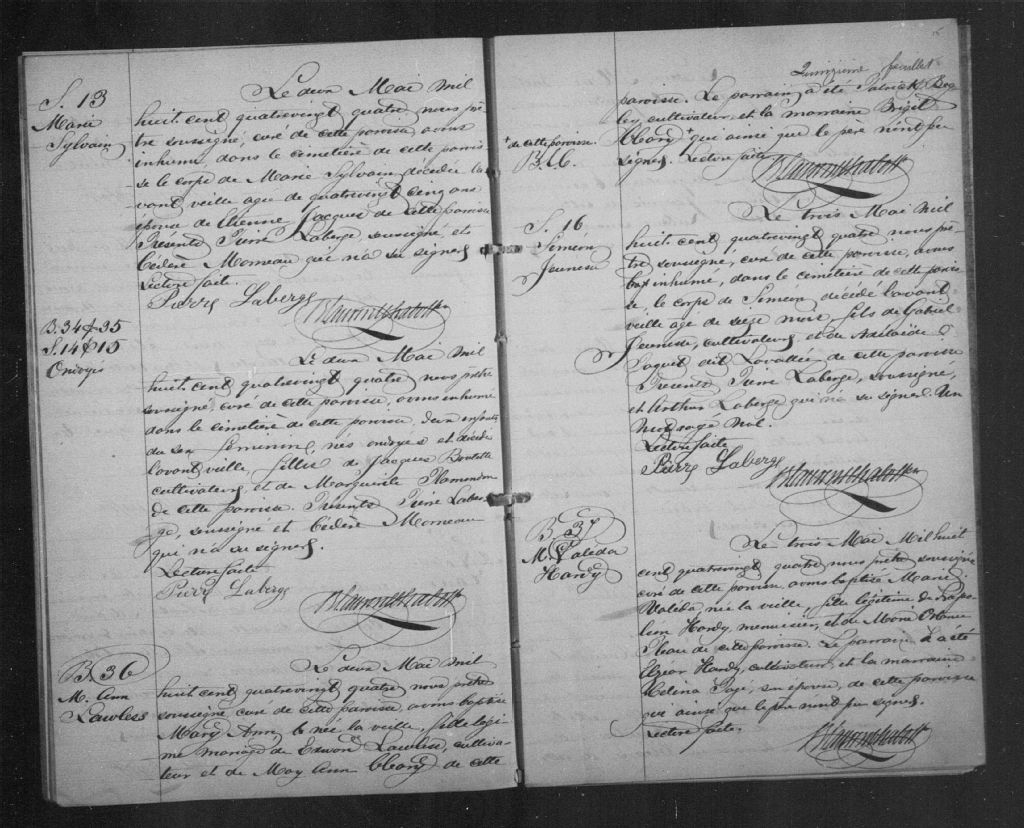 S. 13
Marie
Sylvain
Le deux Mai mil
huit cent quatrevingt quatre nous prê-
tre soussigné, curé de cette paroisse avons
inhumé, dans le cimetière de cette parois-
se le corps de Marie Sylvain décédée l'a-
vant veille age de quatrevingt cinq ans
épouse de Etienne Jacques de cette paroisse
Presents Pierre Laberge, soussigné, et
Cédère Morneau qui n'a su signer
Lecture faite.
Pierre Laberge
B. 34 & 35
S. 14 & 15
Ondoyés
Le deux Mai mil
huit cent quatrevingt quatre nous prêtre
soussigné, curé de cette paroisse, avons inhumé
dans le cimetière de cette paroisse, deux enfants
du sex féminin, nés ondoyés et décédés
l'avant veille, filles de Jacques
cultivateur, et de Marguerite Plamondon
de cette paroisse. Presents Pierre Laber-
ge, soussigné et Cédère Morneau
qui n'a su signer.
Lecture faite
Pierre Laberge
B. 36
M. Ann
Lawless
Le deux Mai mil
huit cent quatrevingt quatre nous prêtre
soussigné, curé de cette paroisse, avons baptisé
Mary Ann née la veille, fille légi-
me mariage de Edward Lawless, cultiva-
teur et de May Ann Cleary de cette
Quinzième feuillet
paroisse. Le parrain a été Patrick
cultivateur, et la marraine Briget
Cleary + qui ainsi que le père n'ont pu
signer. Lecture faite
+ de cette paroisse.
B.L.C.
S. 16
Siméon
Jeunesse
Le trois Mai mil
huit cent quatrevingt quatre nous prê-
tre soussigné, curé de cette paroisse, avons
inhumé, dans le cimetière de cette parois-
se le corps de Siméon décédé l'avant
veille age de seize mois, fils de Gabriel
Jeunesse, cultivateur, et de Adelaïde
Paquet dit Lavallée de cette paroisse
Presents Pierre Laberge, soussigné,
et Arthur Laberge qui n'a su signer. Un
mot rayé nul.
Lecture faite
Pierre Laberge
B 37
M. Valéda
Hardy
Le trois Mai Mil huit
cent quatrevingt quatre nous prêtre soussigné
curé de cette paroisse avons baptisé Marie
Valéda, née la veille, fille légitime de Napo-
léon Hardy, menuisier, et de Marie
de cette paroisse. Le parrain a été
Elzear Hardy, cultivateur, et la marraine
Melina Pagé, son épouse, de cette paroisse
qui ainsi que le père n'ont pu signer.
Lecture faite.